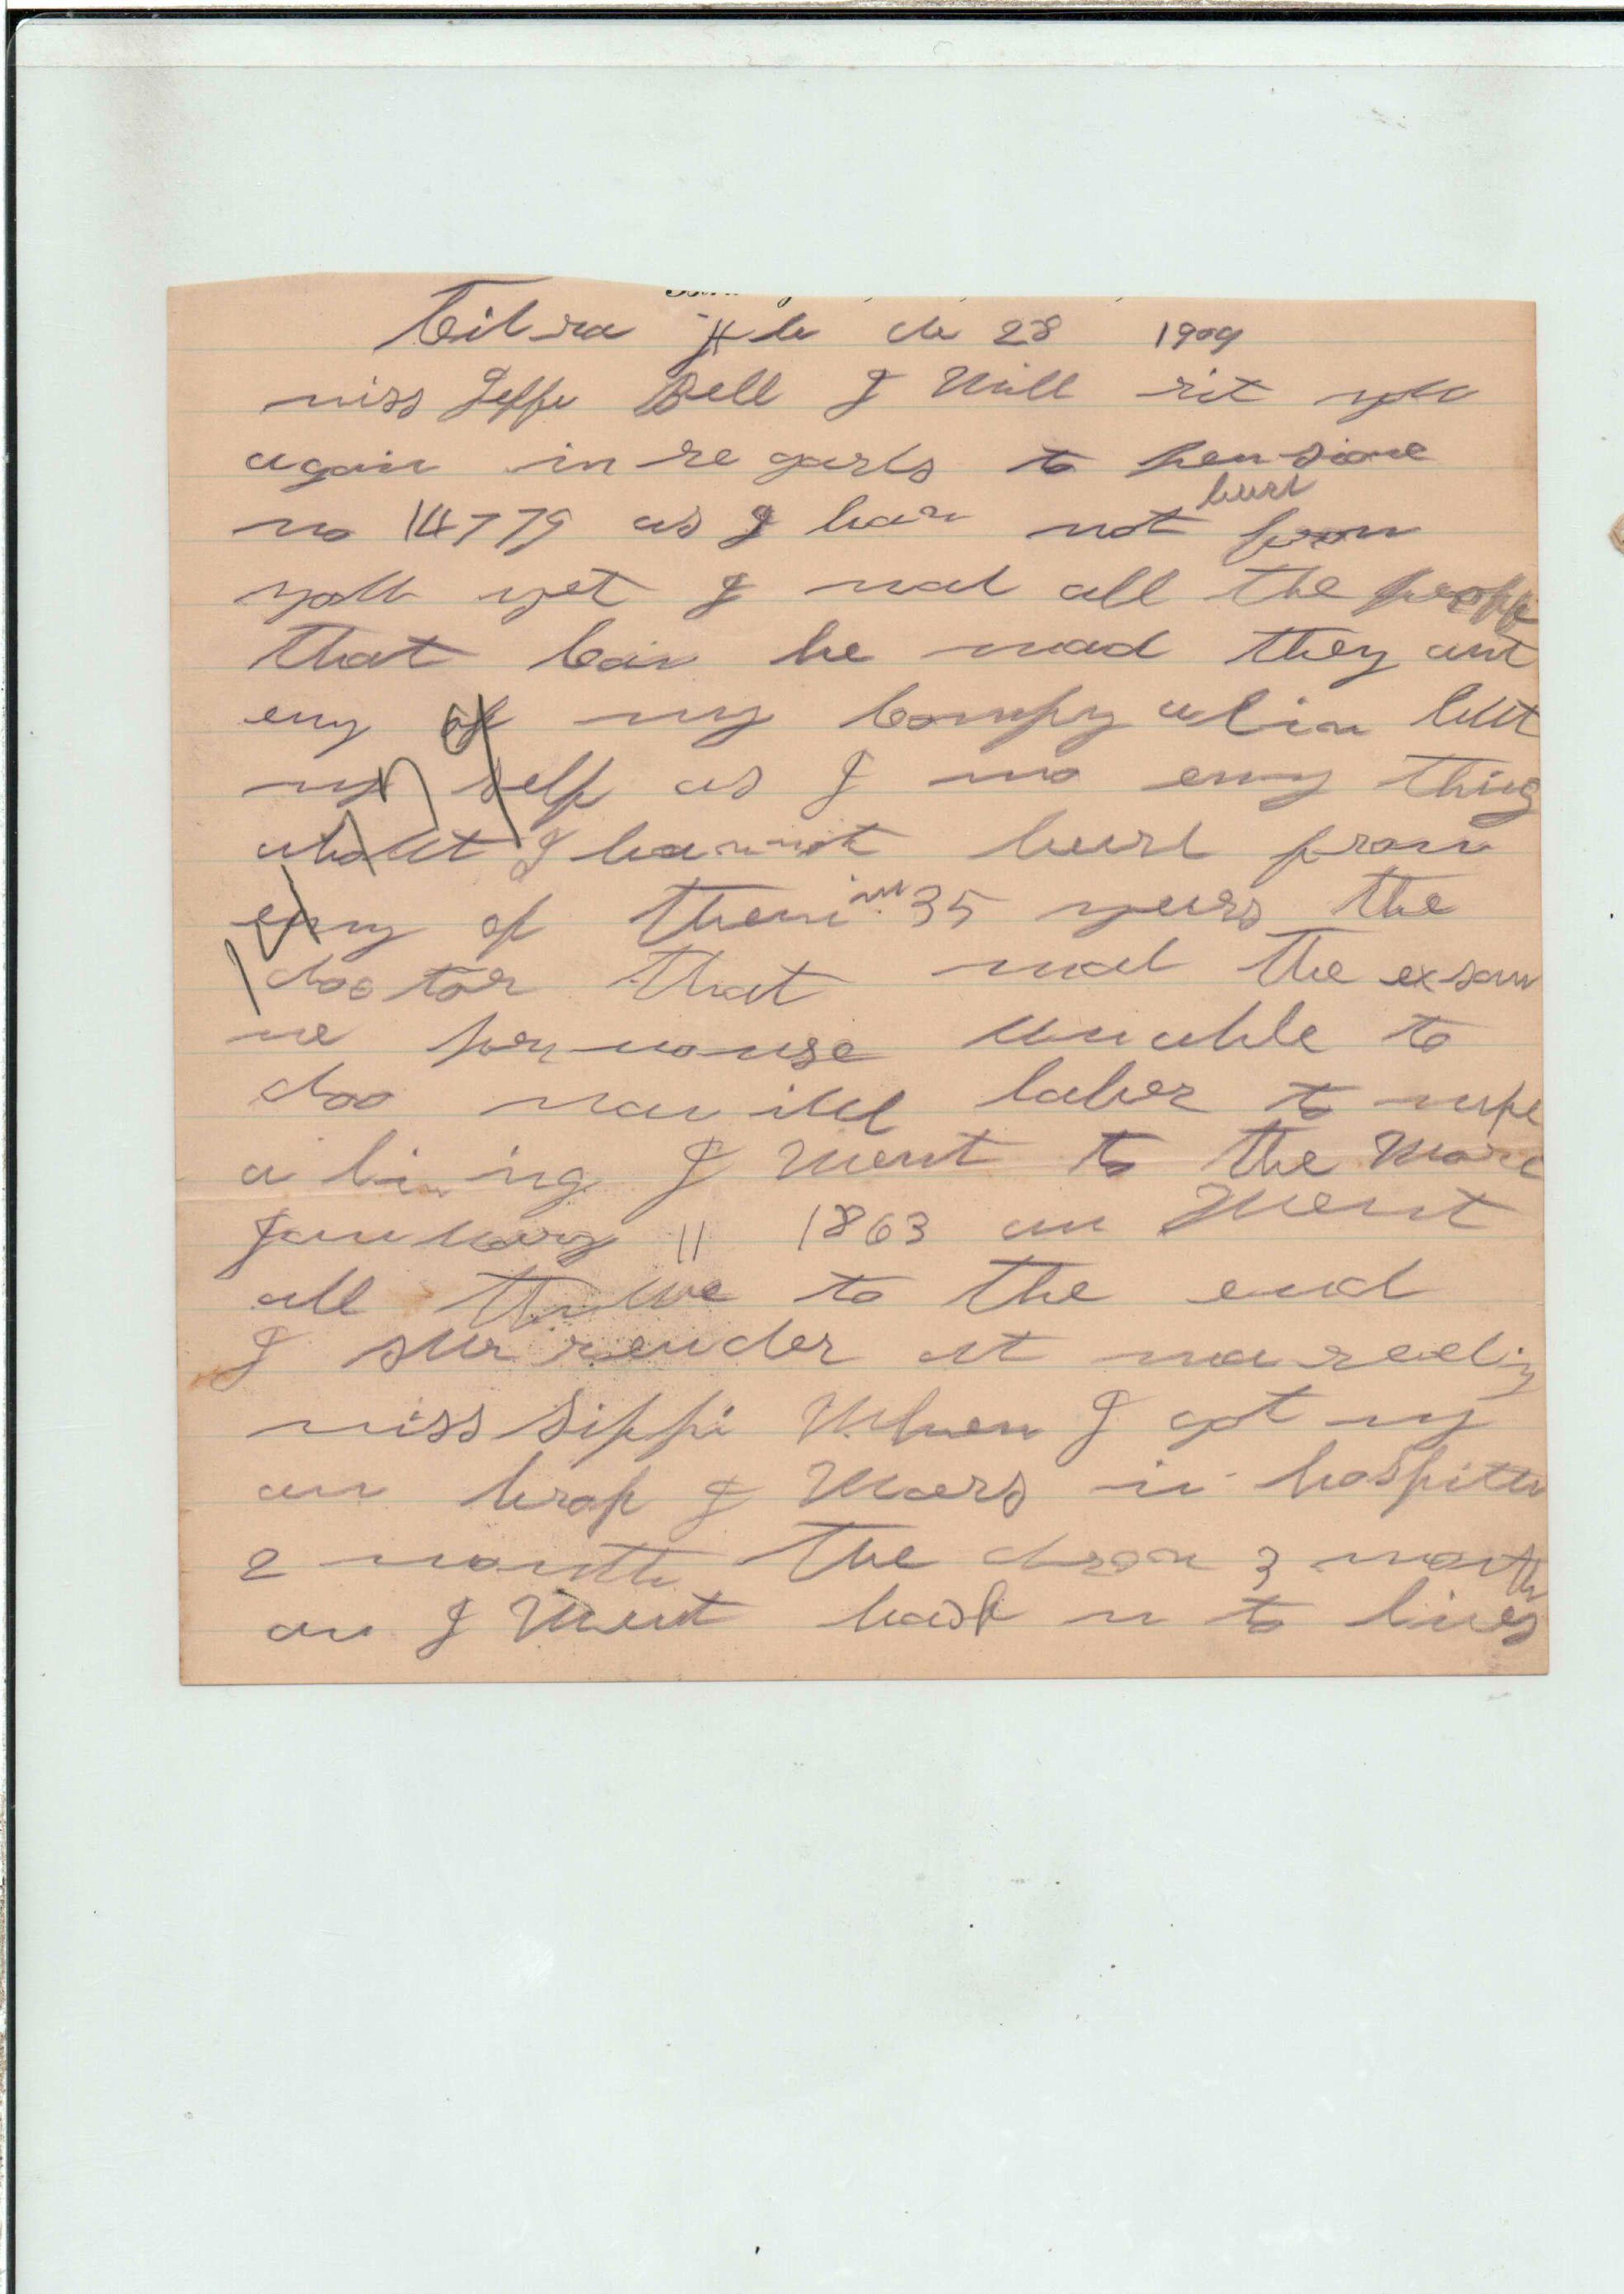 Citra Fla de 28 1909
miss Jeffe Bell I Will rit you
again in re gards to pensione
no 14779 as I hav not hurd from
you yet I mad all the prooffe
that can be mad they ant
eny of my Compy alive but
my self as I no eny thing
about I have not hurd from
eny of them in 35 years the
doo tor that mad the exsam
ne pornounse unable to
doo manuel laber to
a living I Went to the Ware
January 11 1863 an Went
all thrue to the end
I sur render at maredin
miss Sippi When I got my
an I Wars in hospittu
2 month the 3 month
an I Went back n to lines
14779